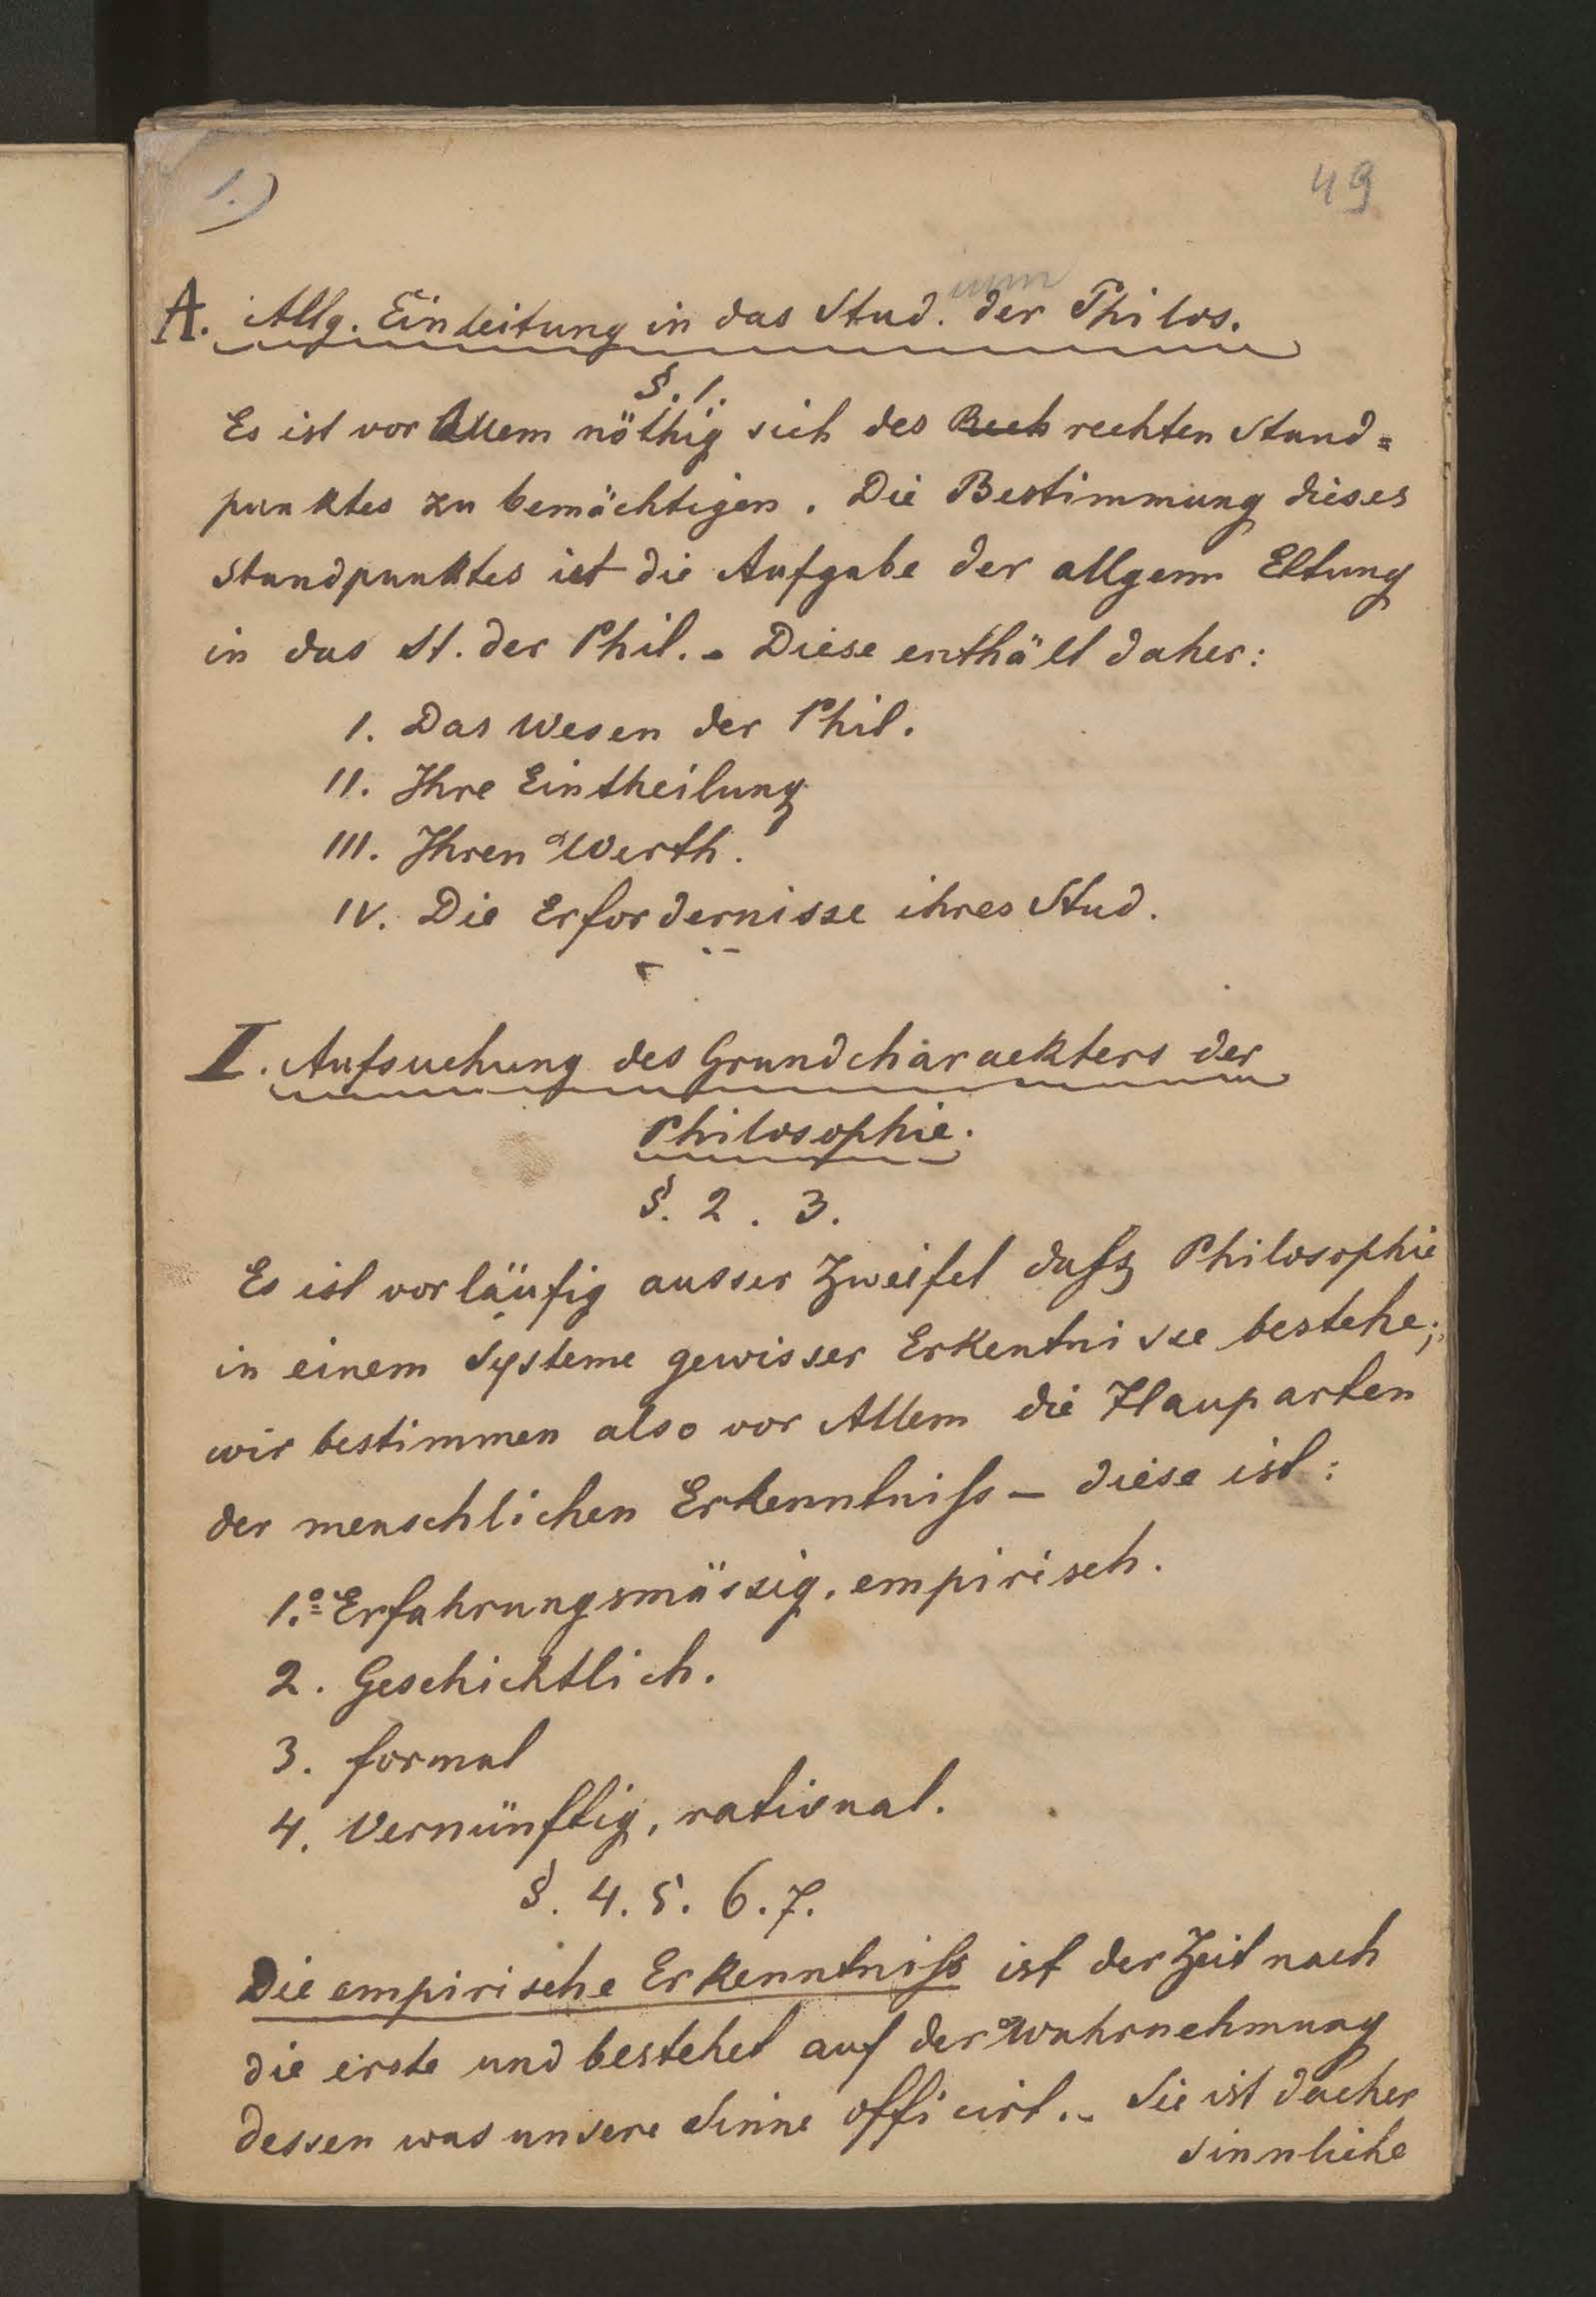 1.)
49
A. Allg. Einleitung in das Stud. ium der Philos.
§. 1.
Es ist vor Allem nöthig sich des Rech rechten Stand=
punktes zu bemächtigen. Die Bestimmung dieses
Standpunktes ist die Aufgabe der allgem Eltung
in das St. der Phil. - Diese enthält daher:
I. Das Wesen der Phil.
II. Ihre Eintheilung
III. Ihren Werth.
IV. Die Erfordernisse ihres Stud.
I. Aufsuchung des Grundcharackters der
Philosophie.
§. 2. 3.
Es ist vorläufig ausser Zweifel daſs Philosophie
in einem Systeme gewisser Erkentnisse bestehe;
wir bestimmen also vor Allem die Hauparten
der menschlichen Erkenntniſs – diese ist:
1.º Erfahrungsmässig, empirisch.
2. Geschichtlich.
3. formal
4. Vernünftig, rational.
§. 4. 5. 6. 7.
Die empirische Erkenntniſs ist der Zeit nach
die erste und bestehet auf der Wahrnehmung
dessen was unsere Sinne afficirt. - Sie ist daher
sinnliche